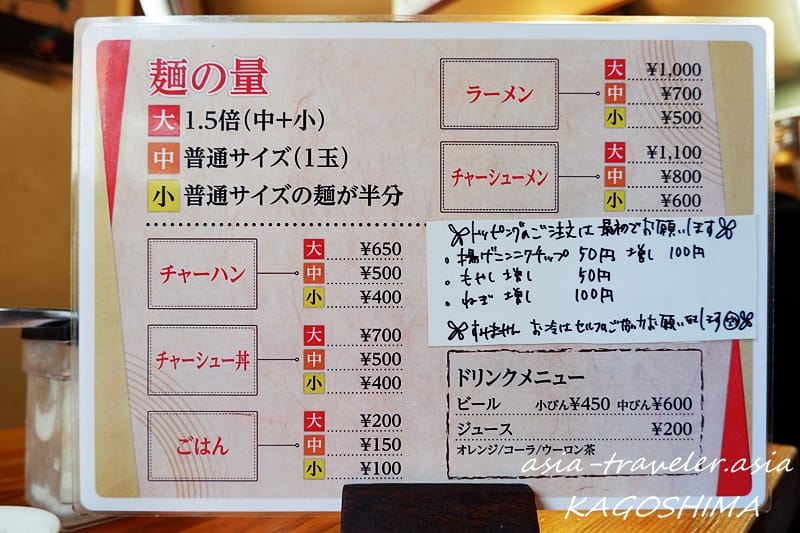 麺の量
大 1.5倍(中+小)
中 普通サイズ(1玉)
小 普通サイズの麺が半分
チャーハン
大 ¥650
中 ¥500
小 ¥400
チャーシュー丼
大 ¥700
中 ¥500
小 ¥400
ごはん
大 ¥200
中 ¥150
小 ¥100
ラーメン
大 ¥1,000
中 ¥700
小 ¥500
チャーシューメン
大 ¥1,100
中 ¥800
小 ¥600
トッピングのご注文は最初でお願いします
・揚げニンニクチップ 50円 増し 100円
・もやし増し 50円
・ねぎ 増し 100円
すみません お冷はセルフのご協力お願い致します
ドリンクメニュー
ビール 小びん¥450 中びん¥600
ジュース ¥200
オレンジ/コーラ/ウーロン茶
asia-traveler.asia
KAGOSHIMA